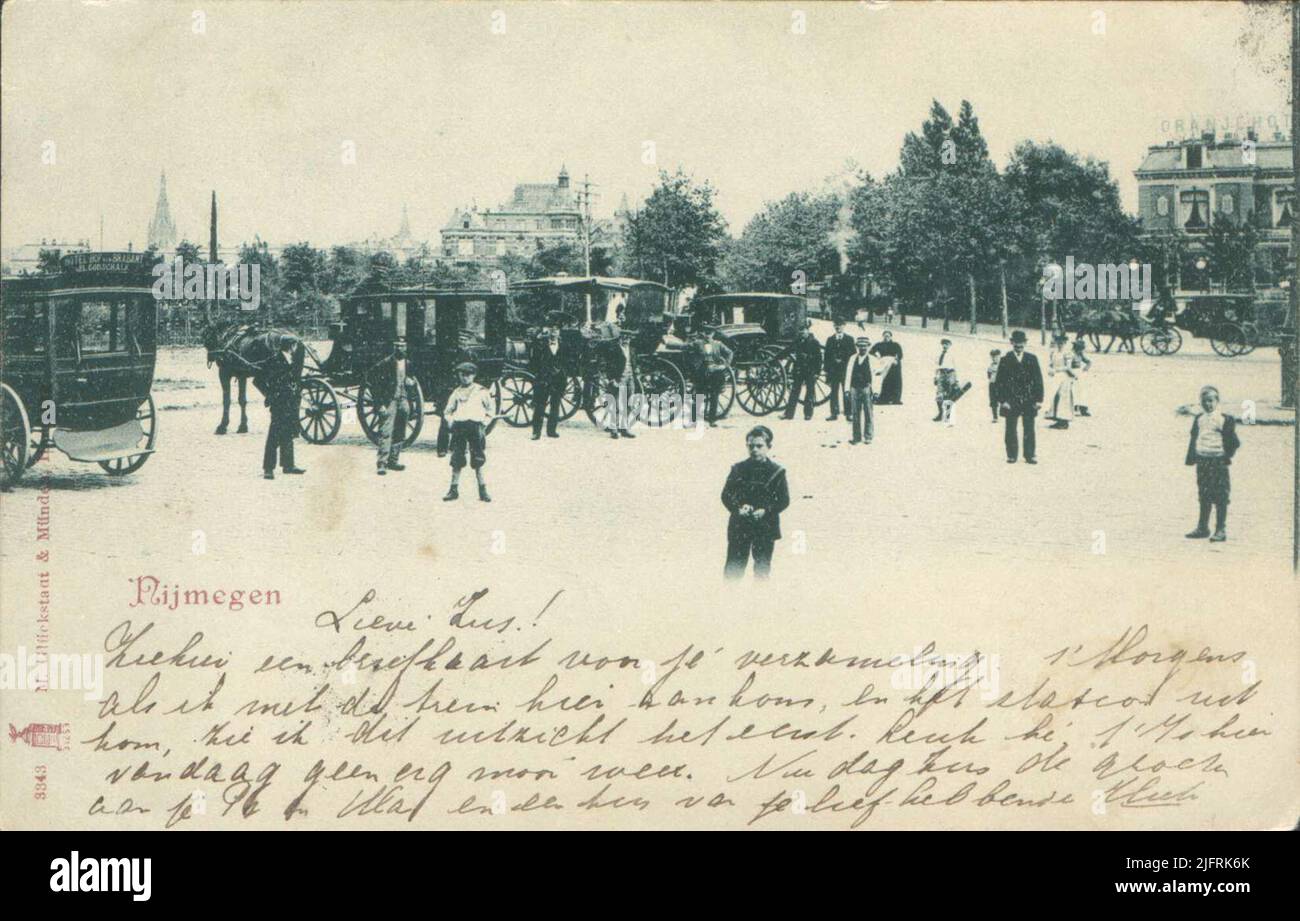 ORANJEHOT
HOTEL HOF VAN BRABANT
Nijmegen
Lieve Zus!
Ziehier een briefkaart voor je verzameling. 's Morgens
als ik met de trein hier aankom, en het station uit
kom, zie ik dit uitzicht het eerst. 't Is hier
vandaag geen erg mooi weer. Nu dag zus de groeten
aan je Pa en Ma en een kus van je liefhebbende
M. Glückstadt & Münden
3343
alamy
Image ID: 2JFRK6K
www.alamy.com